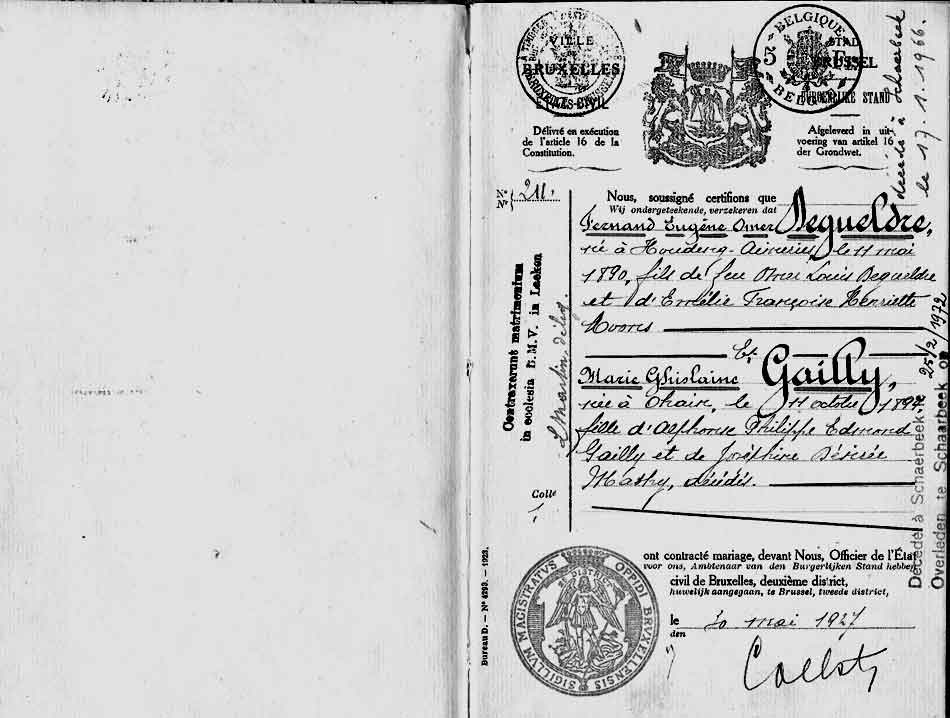 VILLE
DE
BRUXELLES
ÉTAT-CIVIL
BELGIQUE
5 Fr
STAD
BRUSSEL
BURGERLIJKE STAND
Délivré en exécution
de l'article 16 de la
Constitution.
Afgeleverd in uit-
voering van artikel 16
der Grondwet.
décédé à Schaerbeek
le 17.1.1966.
N°
N°
211.
Nous, soussigné certifions que
Wij ondergeteekende, verzekeren dat
Fernand Eugène Omer Degueldre,
né à Houdeng-Aimeries, le 11 mai
1890, fils de feu Omer Louis Degueldre
et d'Emélie Françoise Henriette
Moors
Et
Marie Ghislaine Gailly,
née à Thain, le 11 octobre 1897
fille d'Alphonse Philippe Edmond
Gailly et de Joséphine Désirée
Mathy, décédés.
Contraxerunt matrimonium
in ecclesia B. M. V. in Laeken
Colle
Décédé à Schaerbeek
Overleden te Schaarbeek
25/2/1972
Bureau D. — N° 4293. — 1923.
SIGILLVM MAGISTRATVS OPPIDI BRVXELLENSIS
ont contracté mariage, devant Nous, Officier de l'État
voor ons, Ambtenaar van den Burgerlijken Stand hebben
civil de Bruxelles, deuxième district,
huwelijk aangegaan, te Brussel, tweede district,
le
den
30 mai 1927